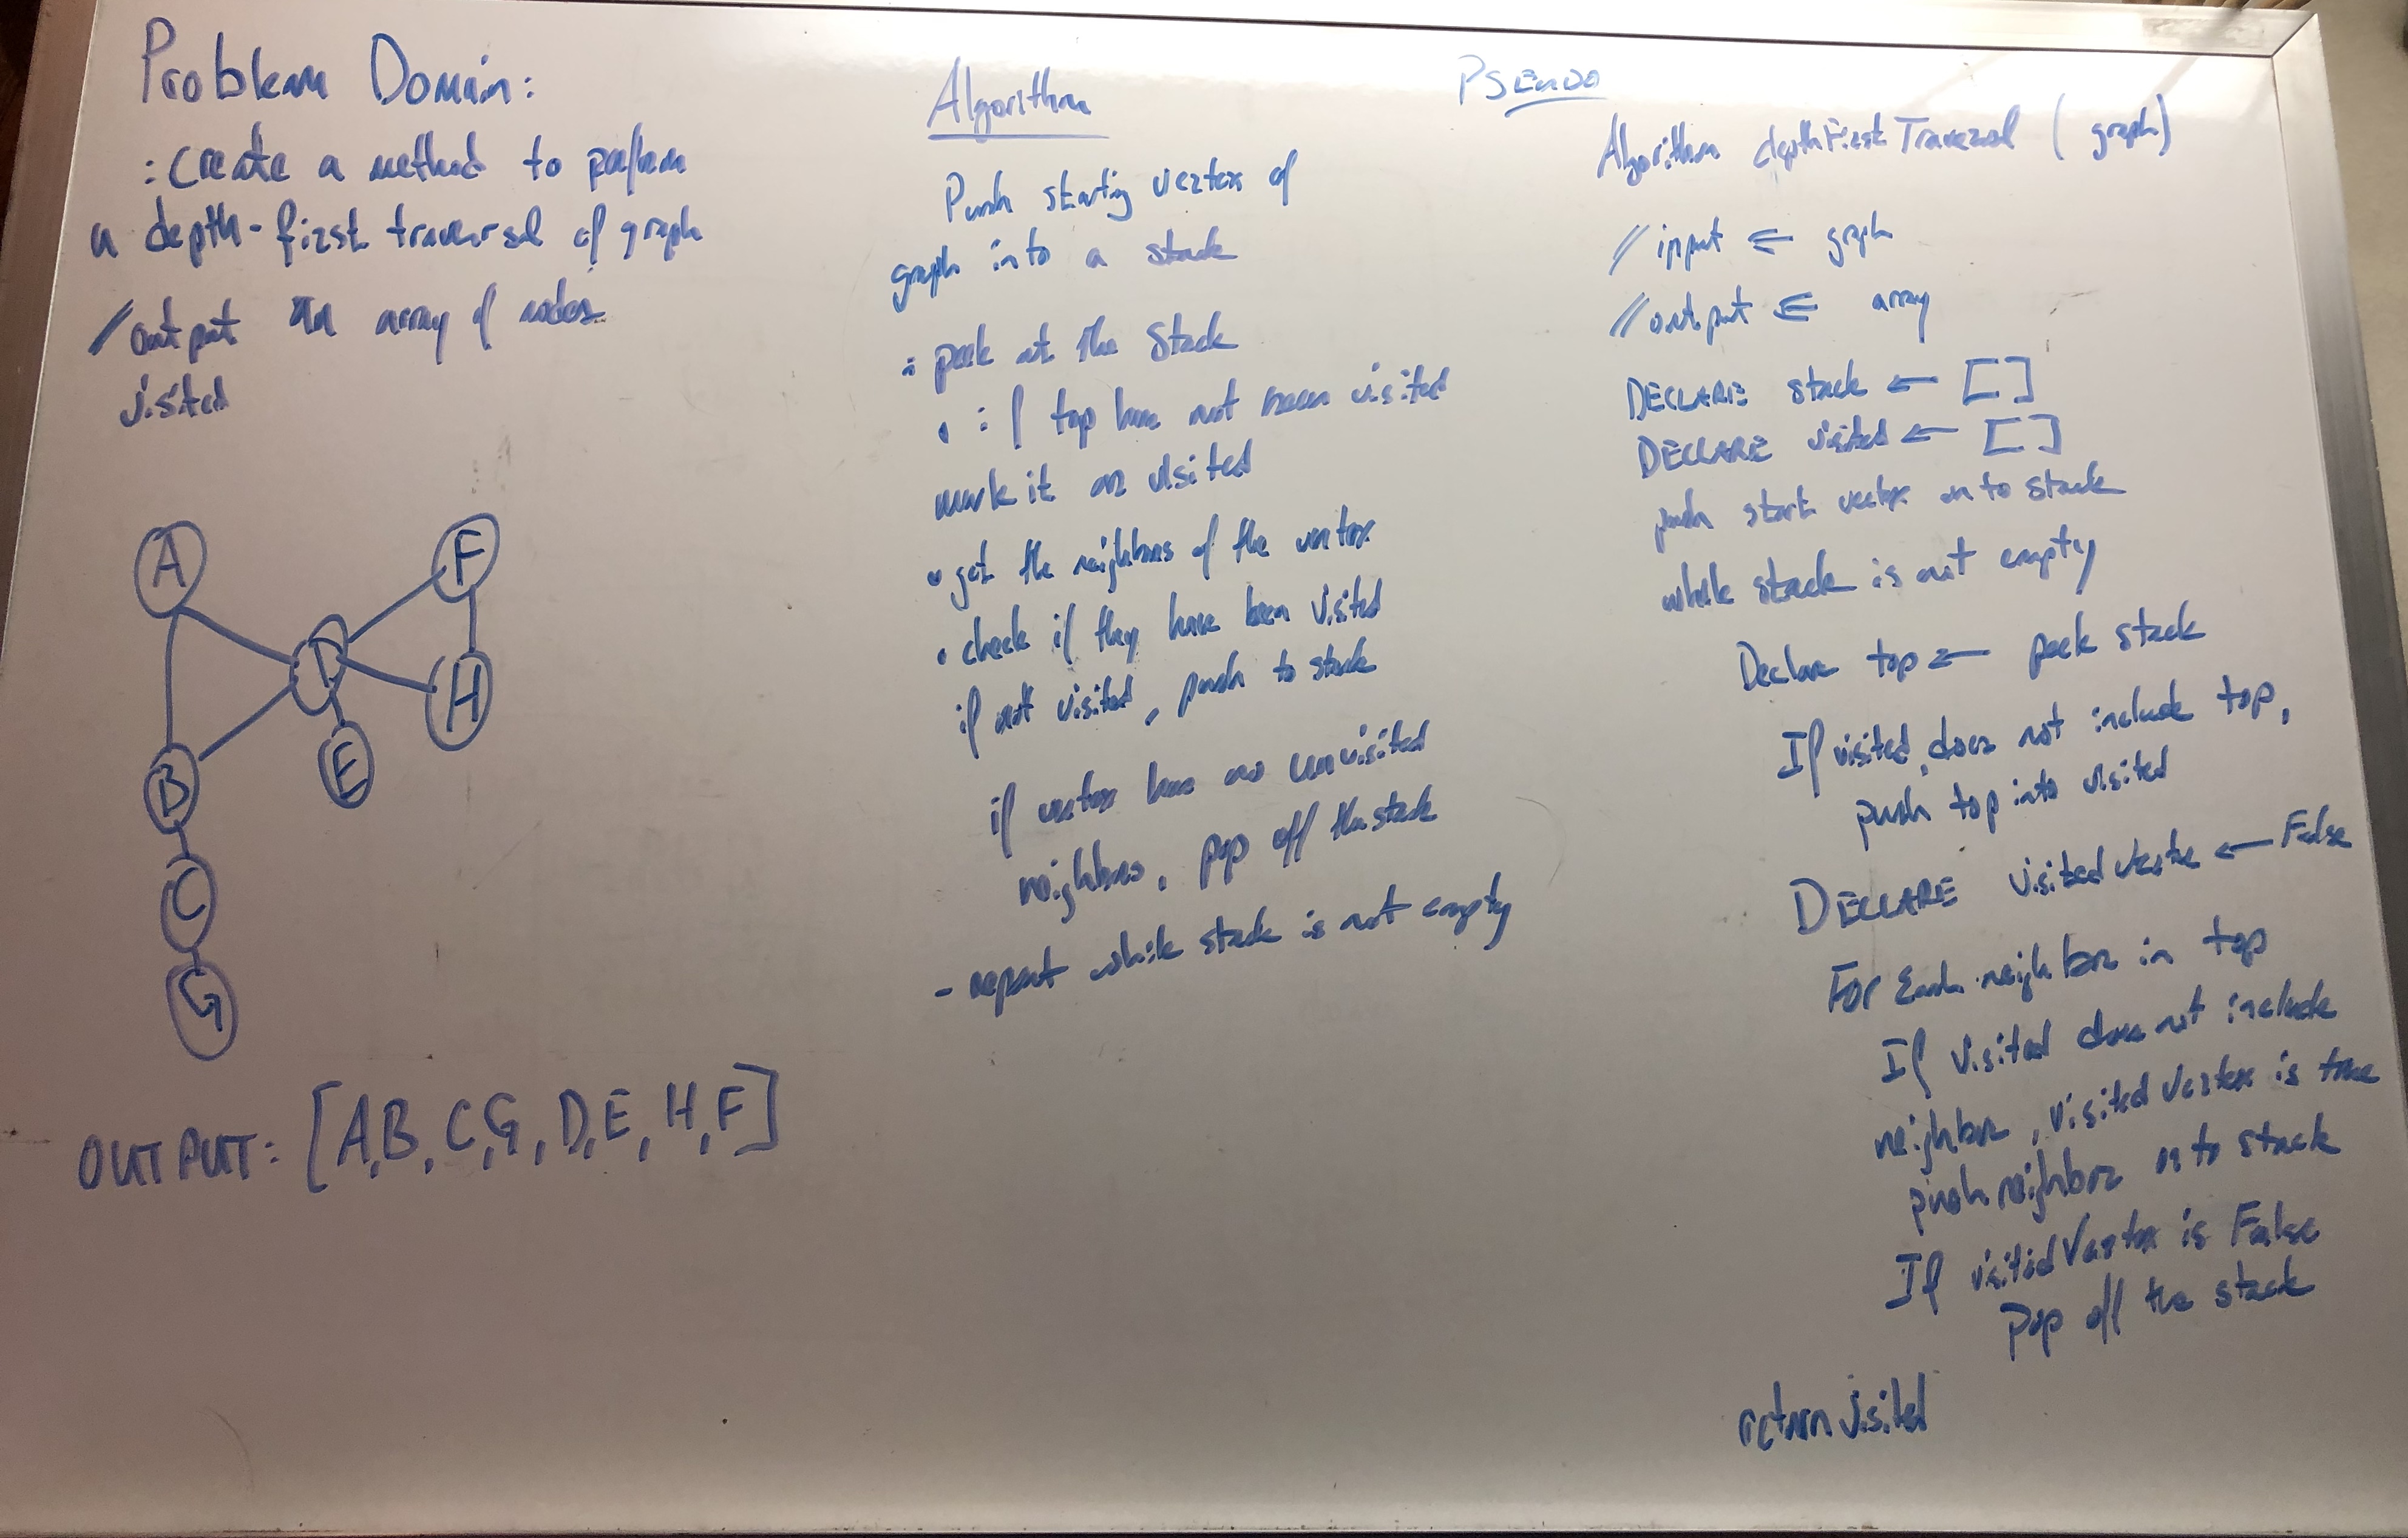 Problem Domain:
: create a method to perform
a depth-first traversal of graph
// output an array of nodes
visited
A
F
D
H
B
E
C
G
OUTPUT: [A,B,C,G,D,E,H,F]
Algorithm
Push starting vertex of
graph into a stack
: peek at the stack
: if top has not been visited
mark it as visited
• get the neighbors of the vertex
• check if they have been visited
if not visited, push to stack
if vertex has no unvisited
neighbors, pop off the stack
- repeat while stack is not empty
PSEUDO
Algorithm depthFirstTraversal (graph)
// input ⇐ graph
// output ⇐ array
DECLARE stack ← []
DECLARE visited ← []
push start vertex on to stack
while stack is not empty
Declare top ← peek stack
If visited does not include top,
push top into visited
DECLARE visitedVertex ← False
For Each neighbor in top
If visited does not include
neighbor, visitedVertex is true
push neighbor onto stack
If visitedVertex is False
Pop off the stack
return visited